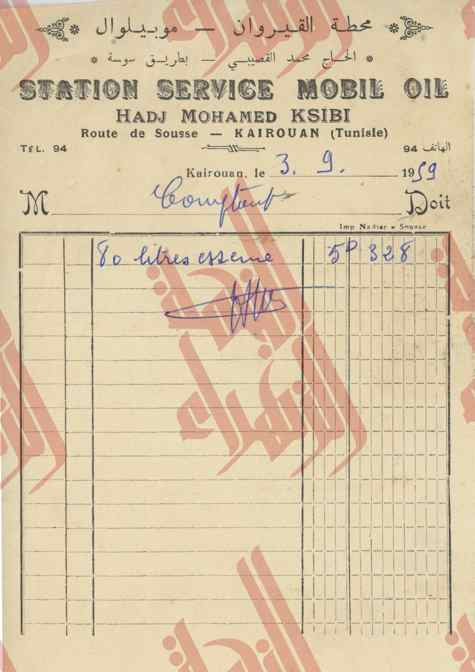 محطة القيروان — موبيلوال
الحاج محمد القصيبي — بطريق سوسة
STATION SERVICE MOBIL OIL
HADJ MOHAMED KSIBI
Route de Sousse — KAIROUAN (Tunisie)
TEL. 94 الهاتف 94
Kairouan, le 3. 9. 1959
M Comptant Doit
Imp Nadher - Sousse
80 litres essence 5D 328